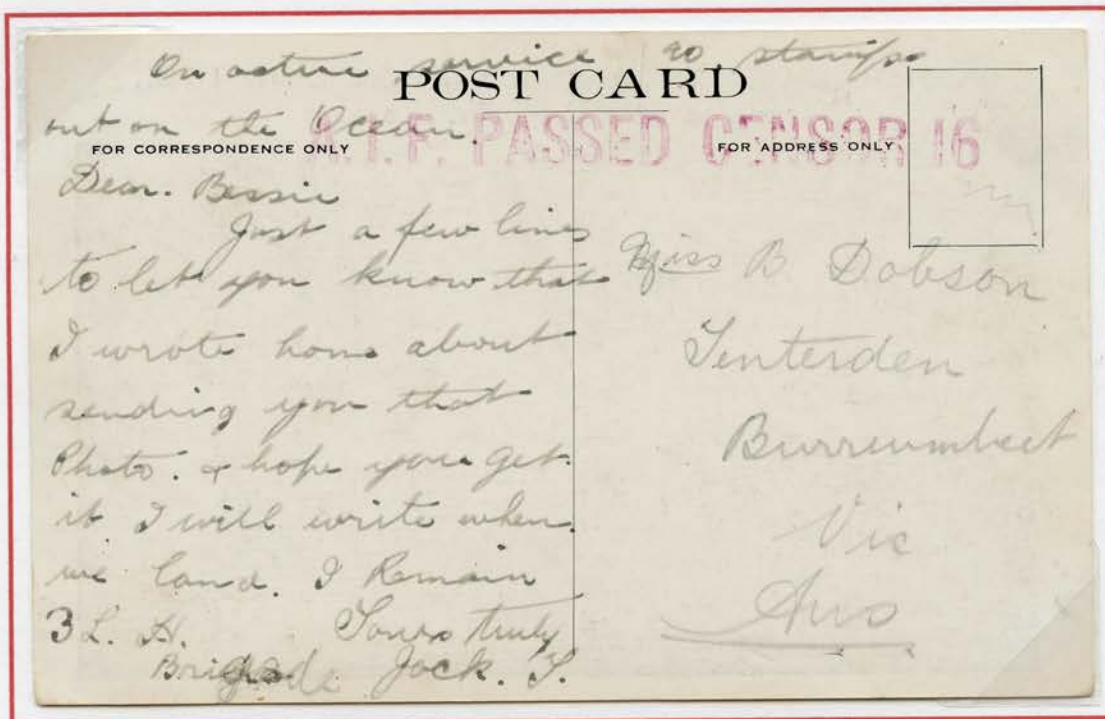 On active service no stamps
POST CARD
out on the Ocean.
A.I.F. PASSED CENSOR 16
FOR CORRESPONDENCE ONLY
FOR ADDRESS ONLY
Dear. Bessie
Just a few lines
to let you know that
I wrote home about
sending you that
Photo. & hope you get
it I will write when
we land. I Remain
3 L. H. Yours truly
Brigade Jack. T.
Miss B. Dobson
Tenterden
Burrumbeet
Vic
Aus